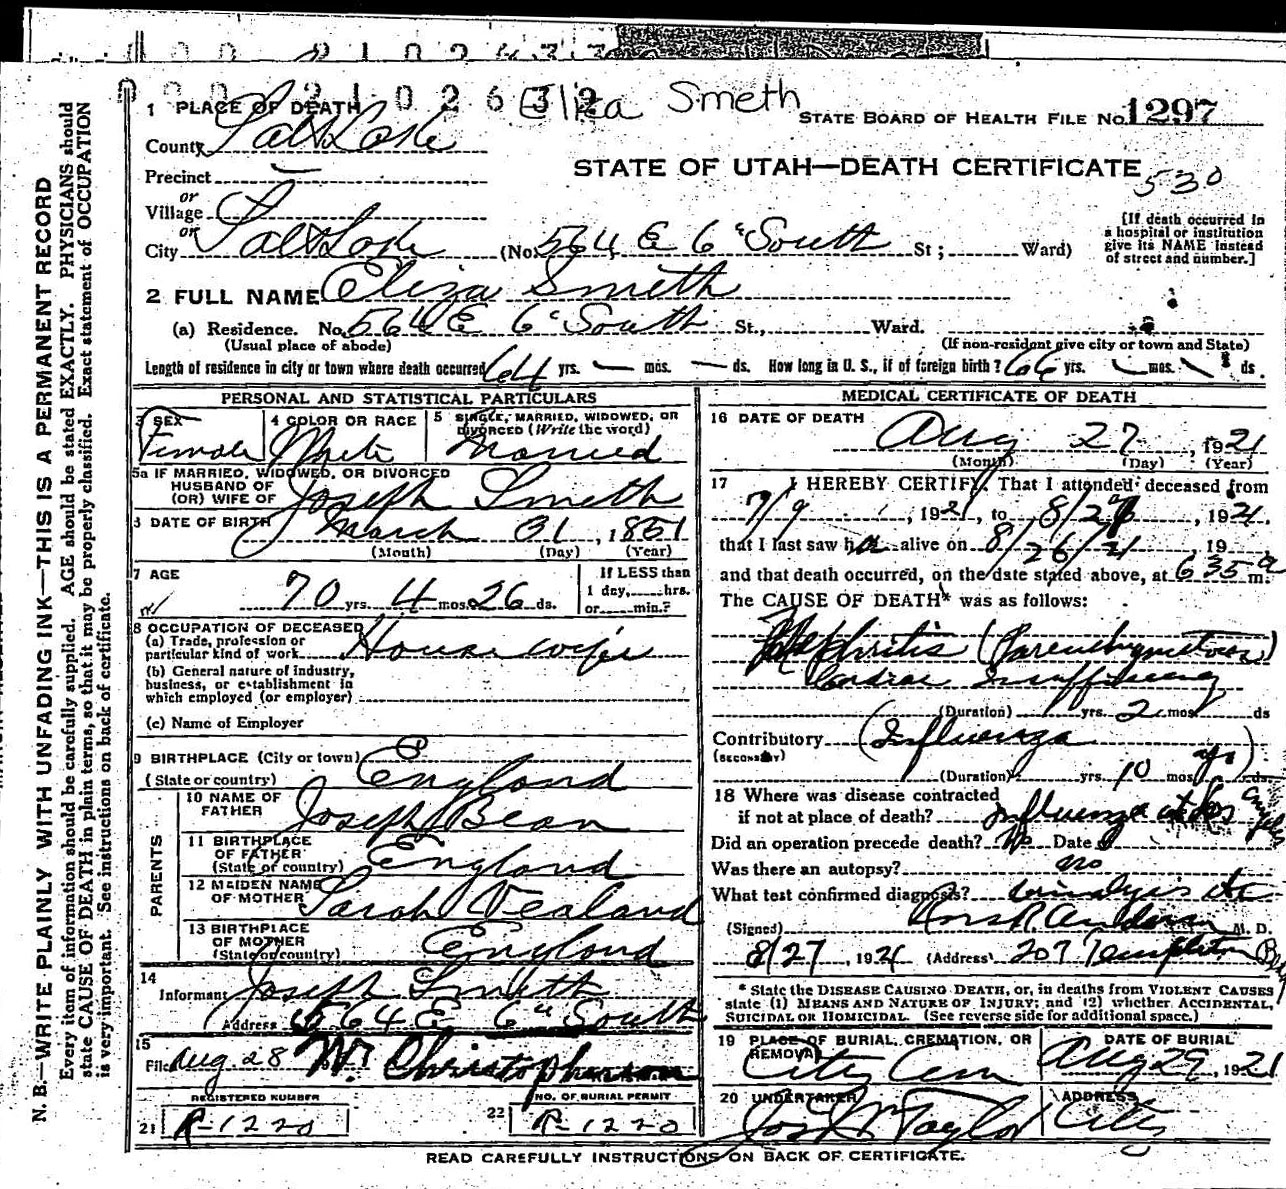 0 0 0 2 1 0 2 6 3 2
Eliza Smeth
1 PLACE OF DEATH
STATE BOARD OF HEALTH FILE No. 1297
County Salt Lake
STATE OF UTAH—DEATH CERTIFICATE
530
Precinct
or
Village
or
City Salt Lake (No. 564 E 6" South St; Ward)
[If death occurred in
a hospital or institution
give its NAME instead
of street and number.]
2 FULL NAME Eliza Smeth
(a) Residence. No. 564 E 6" South St., Ward.
(Usual place of abode) (If non-resident give city or town and State)
Length of residence in city or town where death occurred 64 yrs. — mos. — ds. How long in U. S., if of foreign birth? 66 yrs. — mos. ds.
PERSONAL AND STATISTICAL PARTICULARS
3 SEX Female
4 COLOR OR RACE White
5 SINGLE, MARRIED, WIDOWED, OR
DIVORCED (Write the word) Married
5a IF MARRIED, WIDOWED, OR DIVORCED
HUSBAND OF
(OR) WIFE OF Joseph Smeth
6 DATE OF BIRTH March 31, 1851
(Month) (Day) (Year)
7 AGE
70 yrs. 4 mos. 26 ds.
If LESS than
1 day, hrs.
or min.?
8 OCCUPATION OF DECEASED
(a) Trade, profession or
particular kind of work Housewife
(b) General nature of industry,
business, or establishment in
which employed (or employer)
(c) Name of Employer
9 BIRTHPLACE (City or town)
(State or country) England
PARENTS
10 NAME OF
FATHER Joseph Bean
11 BIRTHPLACE
OF FATHER
(State or country) England
12 MAIDEN NAME
OF MOTHER Sarah Vealand
13 BIRTHPLACE
OF MOTHER
(State or country) England
14
Informant Joseph Smeth
Address 564 E 6" South
15
Filed Aug. 28 W. Christopherson
REGISTERED NUMBER
21 R-1220
NO. OF BURIAL PERMIT
22 R-1220
MEDICAL CERTIFICATE OF DEATH
16 DATE OF DEATH
Aug 27, 1921
(Month) (Day) (Year)
17 I HEREBY CERTIFY, That I attended deceased from
7/9, 1921, to 8/27, 1921
that I last saw h alive on 8/26/21, 19
and that death occurred, on the date stated above, at 6 35 a m.
The CAUSE OF DEATH* was as follows:
Nephritis (Parenchymatous)
Cardiac Insufficiency
(Duration) yrs. 2 mos. ds
Contributory (Influenza
(SECONDARY)
(Duration) yrs. 10 mos. ago) ds.
18 Where was disease contracted
if not at place of death? Influenza at Los Angeles
Did an operation precede death? No Date
Was there an autopsy? no
What test confirmed diagnosis? urinalysis etc
(Signed) Anderson M. D.
8/27, 1921 (Address) 207 Templeton Bld
* State the DISEASE CAUSING DEATH, or, in deaths from VIOLENT CAUSES
state (1) MEANS AND NATURE OF INJURY; and (2) whether ACCIDENTAL,
SUICIDAL OR HOMICIDAL. (See reverse side for additional space.)
19 PLACE OF BURIAL, CREMATION, OR
REMOVAL City Cem
DATE OF BURIAL
Aug 29, 1921
20 UNDERTAKER
Jos Wm Taylor
ADDRESS
City
READ CAREFULLY INSTRUCTIONS ON BACK OF CERTIFICATE.
N. B.—WRITE PLAINLY WITH UNFADING INK—THIS IS A PERMANENT RECORD
Every item of information should be carefully supplied. AGE should be stated EXACTLY. PHYSICIANS should
state CAUSE OF DEATH in plain terms, so that it may be properly classified. Exact statement of OCCUPATION
is very important. See instructions on back of certificate.